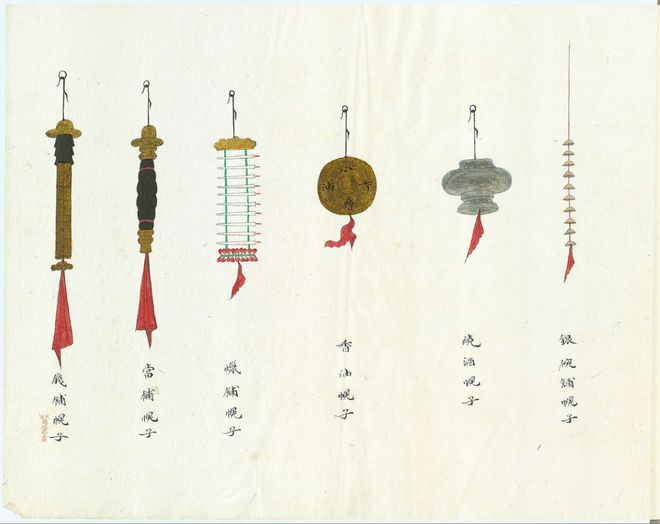 銀碗舖幌子
燒酒幌子
小磨香油
香油幌子
蠟舖幌子
當舖幌子
錢舖幌子